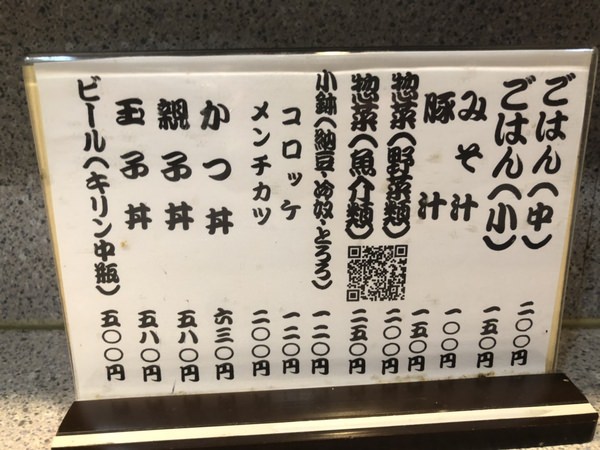 ごはん(中) 二〇〇円
ごはん(小) 一五〇円
みそ汁 一〇〇円
豚汁 一五〇円
惣菜(野菜類) 二〇〇円
惣菜(魚介類) 二五〇円
小鉢(納豆・冷奴・とろろ) 一二〇円
コロッケ 一二〇円
メンチカツ 二〇〇円
かつ丼 六三〇円
親子丼 五八〇円
玉子丼 五八〇円
ビール(キリン中瓶) 五〇〇円